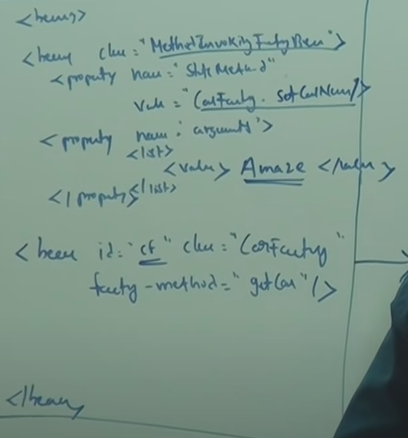 <beans>
<bean class="MethodInvokingFactoryBean">
<property name="StaticMethod"
value="CarFactory.setCarName"/>
<property name="arguments">
<list>
<value> Amaze </value>
</list>
</property>
<bean id="cf" class="CarFactory"
factory-method="getCar"/>
</beans>